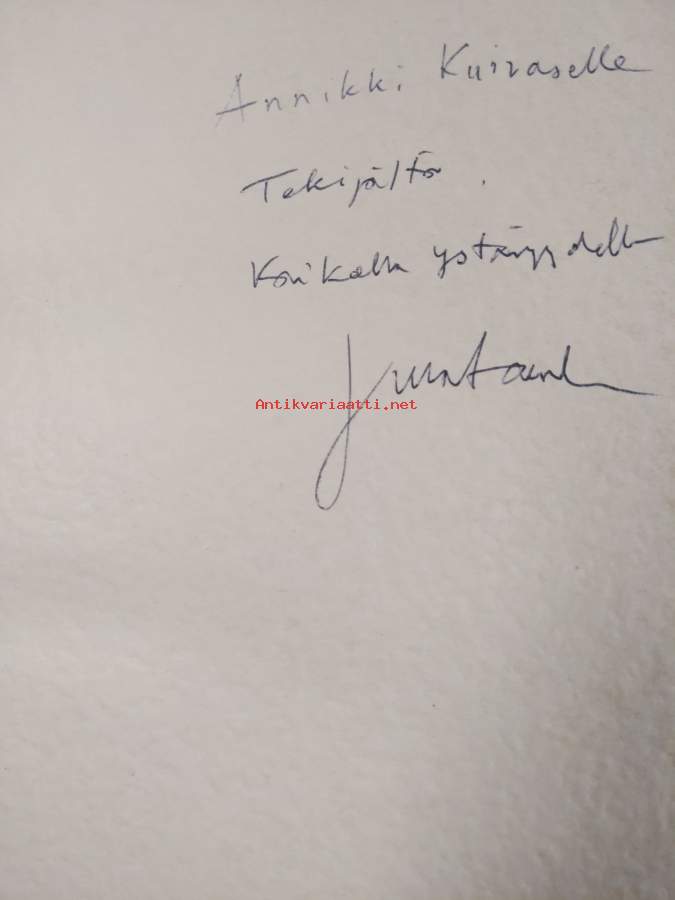 Annikki Kuivaselle
Tekijältä.
Kaikella ystävyydellä
Antikvariaatti.net